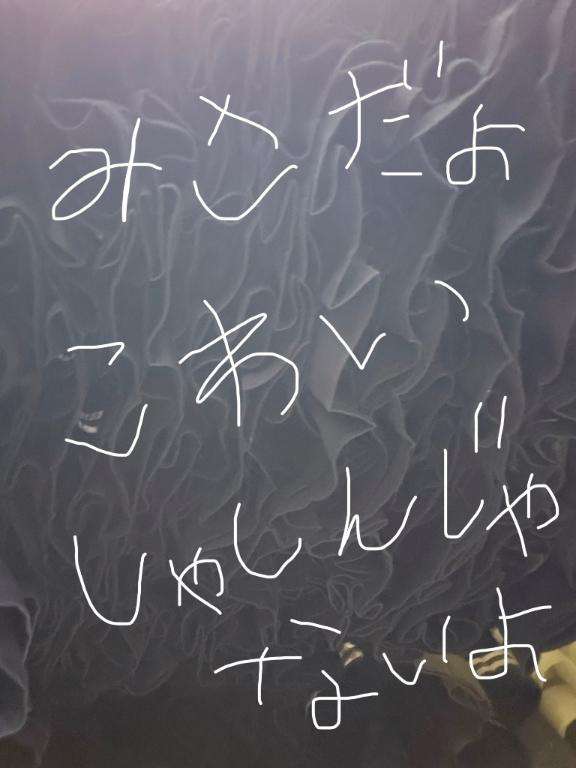 みさだよ
こわい
しゃしんじゃ
ないよ